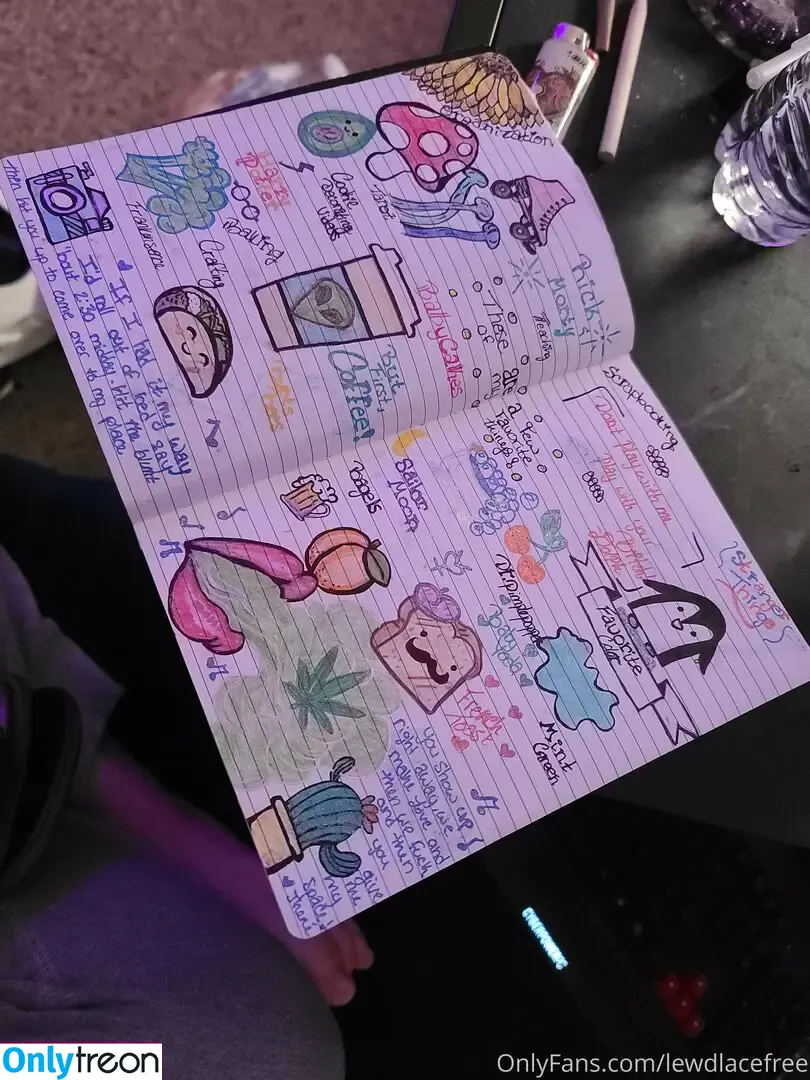 Organization
Tarot
Cookie
Decorating
Videos
Harry
Potter
Baking
Frankinsense
Crafting
Rick &
Morty
Reading
These are a few
of my favorite
things
Bathy Cathies
But
First,
Coffee!
♥ If I had it my way
I'd roll out of bed say
'bout 2:30 midday hit the blunt
then hit you up to come over to my place
Scrapbooking
Dont play with me
play with your
Stranger
Things
Sailor
Moon
Bagels
Dr. Pimple popper
Baby
Yoda
Favorite
Color
Mint
Green
French
Toast
You show up
right away we
make love and
then we fuck
and then
you give
me
my
space
there
CYBERPOWERPC
Onlytreon
OnlyFans.com/lewdlacefree